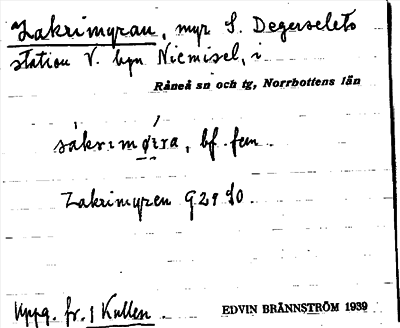 Zakrimyran, myr S. Degerselets
station V. byn Niemisel, i
Råneå sn och tg, Norrbottens län
sàkrımǿıra, bf. fem.
Zakrimyren G 29 SO.
Uppg. fr. 1 Kullen.
EDVIN BRÄNNSTRÖM 1939